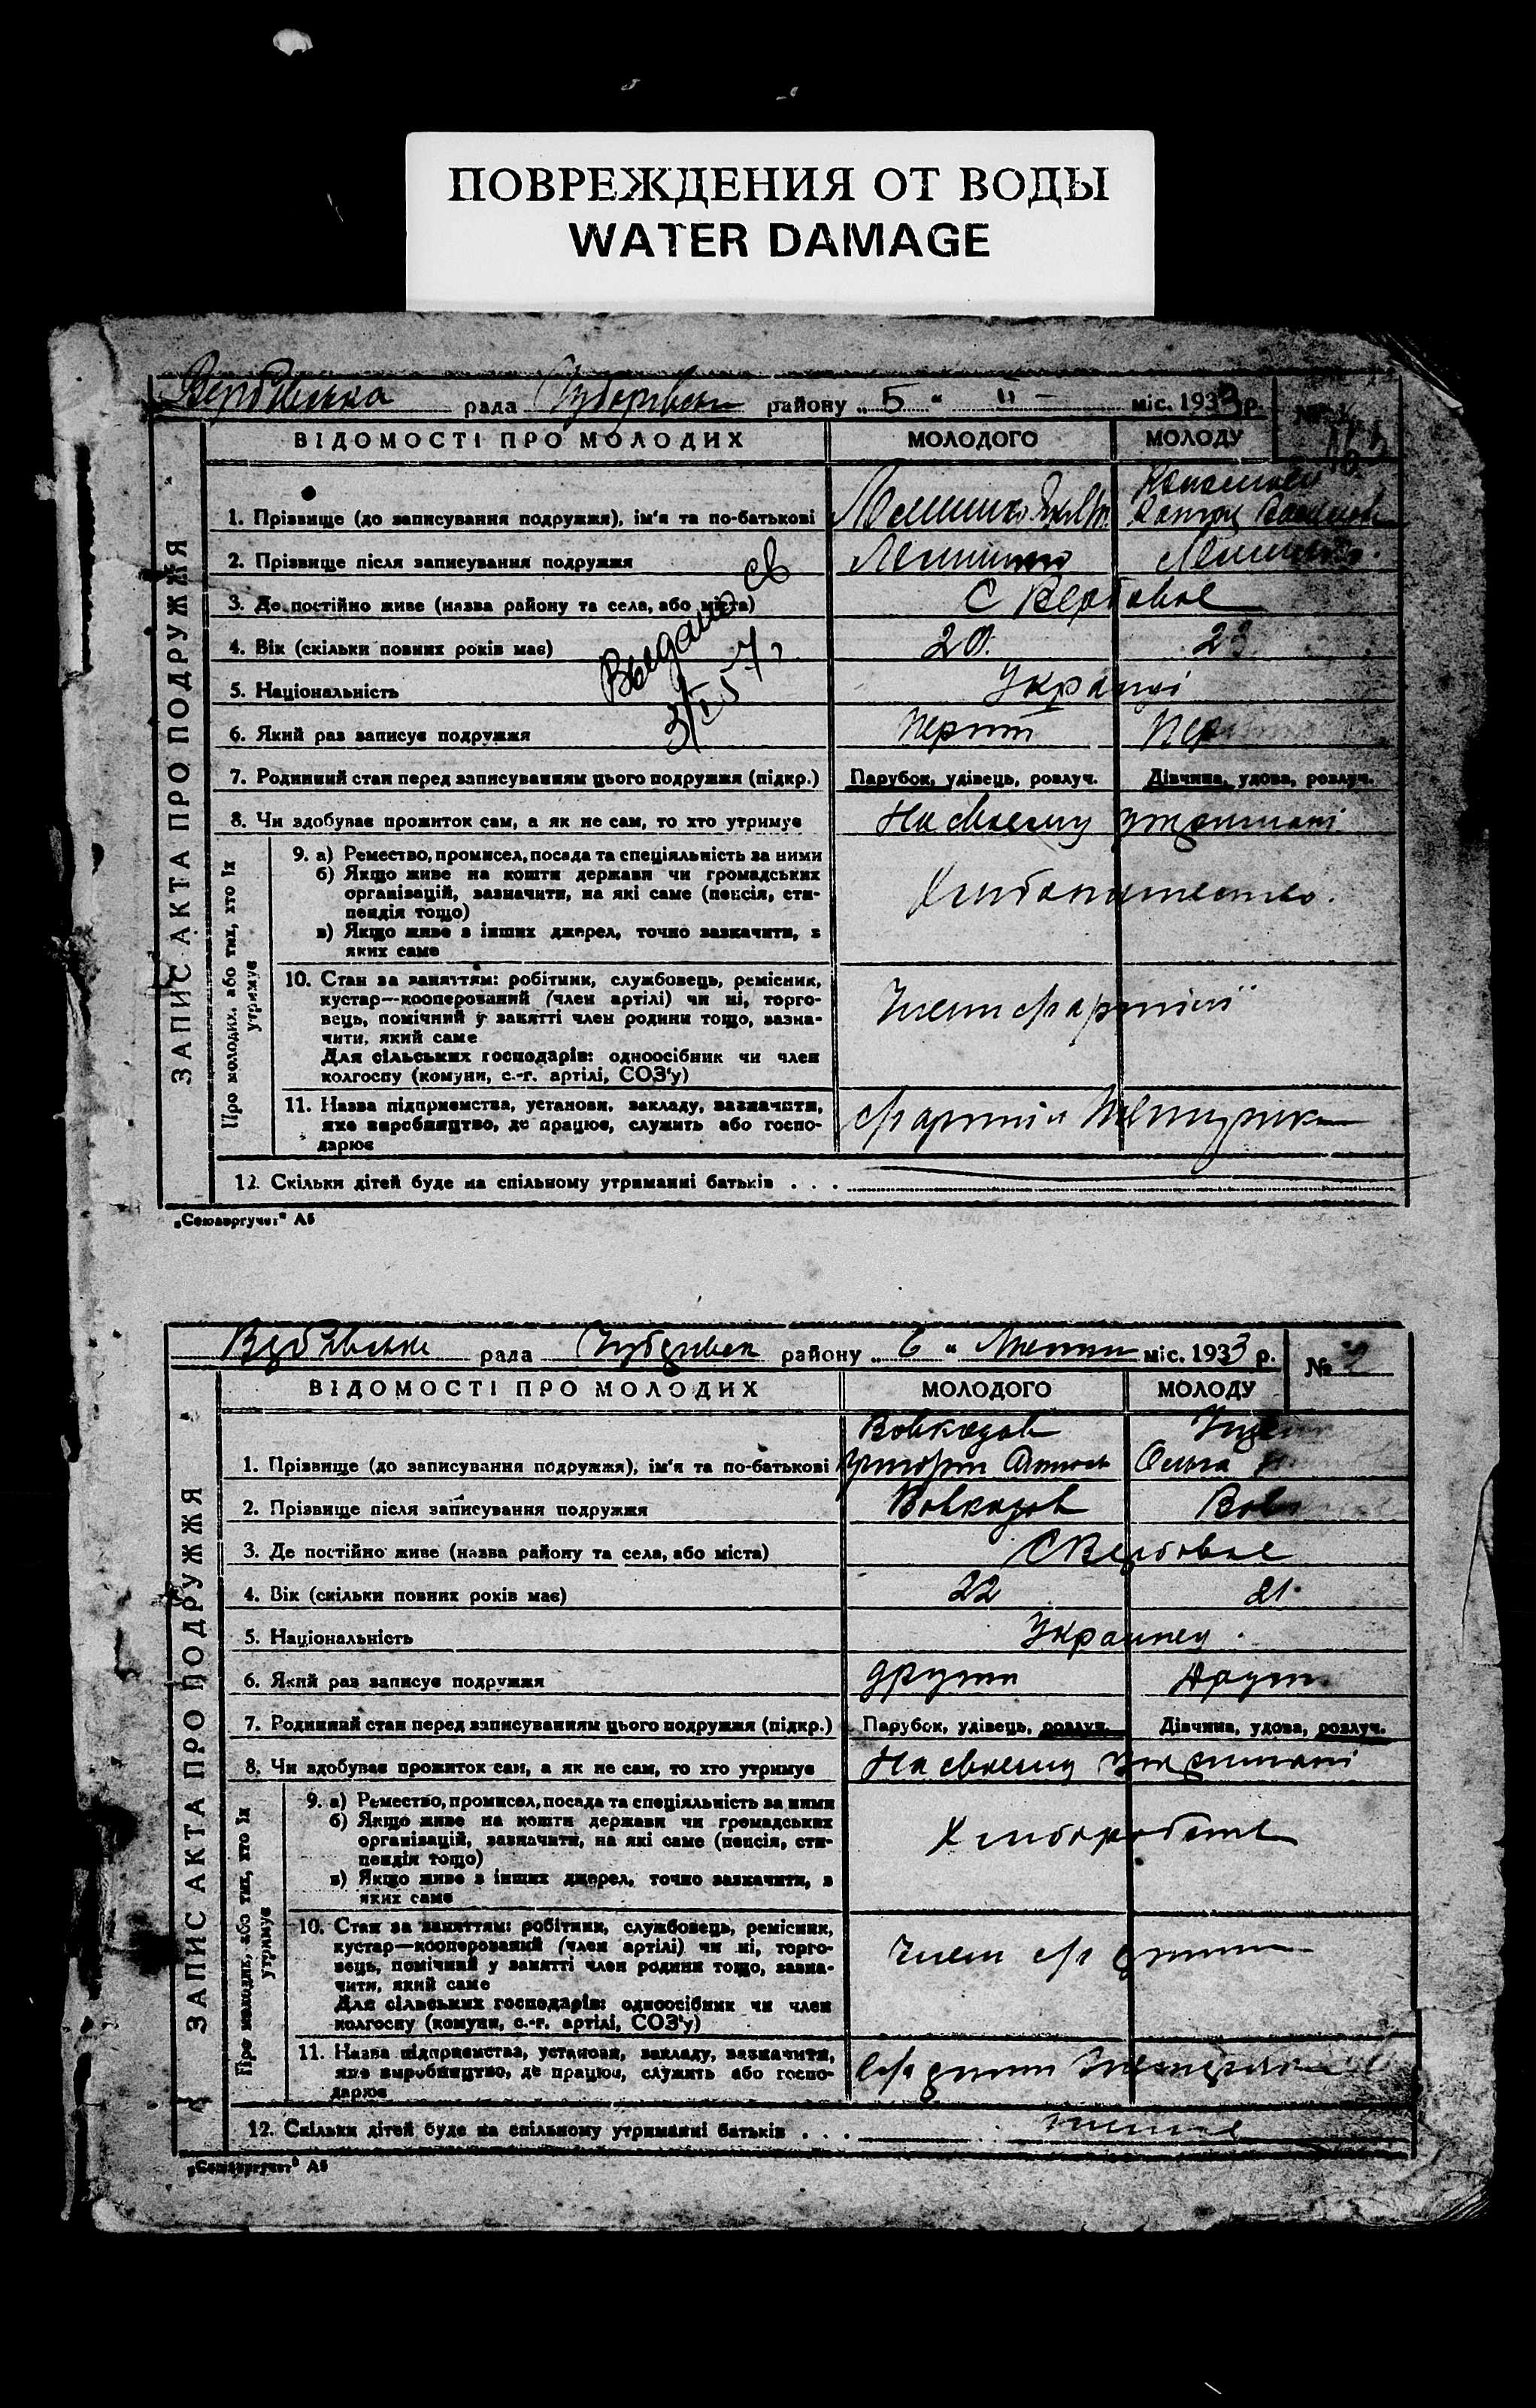 ПОВРЕЖДЕНИЯ ОТ ВОДЫ
WATER DAMAGE
Вербівська рада Чубарівськ району „5“ II – міс. 1933 р. №
ВІДОМОСТІ ПРО МОЛОДИХ МОЛОДОГО МОЛОДУ
ЗАПИС АКТА ПРО ПОДРУЖЖЯ
1. Прізвище (до записування подружжя), ім'я та по-батькові
2. Прізвище після записування подружжя
3. Де постійно живе (назва району та села, або міста) С Вербовое
4. Вік (скільки повних років має) 20. 23
Выдано св
5. Національність Українці
6. Який раз записує подружжя перший пер
7. Родинний стан перед записуванням цього подружжя (підкр.) Парубок, удівець, розлуч. Дівчина, удова, розлуч.
8. Чи здобуває прожиток сам, а як не сам, то хто утримує На своєму утриманні
Про молодих, або тих, хто їх утримує
9. а) Ремество, промисел, посада та спеціяльність за ними
б) Якщо живе на кошти держави чи громадських
організацій, зазначити, на які саме (пенсія, сти-
пендія тощо)
в) Якщо живе з інших джерел, точно зазначити, з
яких саме
Хлибопашество.
10. Стан за заняттям: робітник, службовець, ремісник,
кустар—кооперований (член артілі) чи ні, торго-
вець, помічний у занятті член родини тощо, зазна-
чити, який саме
Для сільських господарів: одноосібник чи член
колгоспу (комуни, с.-г. артілі, СОЗ'у)
Член с/г артілії
11. Назва підприємства, установи, закладу, зазначити,
яке виробництво, де працює, служить або госпо-
дарює
с/г артіль
12. Скільки дітей буде на спільному утриманні батьків . . .
„Союзоргучет“ А5
Вербівська рада Чубарівськ району „6“ Лютого міс. 1933 р. № 2
ВІДОМОСТІ ПРО МОЛОДИХ МОЛОДОГО МОЛОДУ
ЗАПИС АКТА ПРО ПОДРУЖЖЯ
Вовкодав
1. Прізвище (до записування подружжя), ім'я та по-батькові Ольга
2. Прізвище після записування подружжя Вовкодав Вов
3. Де постійно живе (назва району та села, або міста) С Вербовое
4. Вік (скільки повних років має) 22 21.
5. Національність Украинец.
6. Який раз записує подружжя други други
7. Родинний стан перед записуванням цього подружжя (підкр.) Парубок, удівець, розлуч. Дівчина, удова, розлуч.
8. Чи здобуває прожиток сам, а як не сам, то хто утримує На своєму утриманні
Про молодих, або тих, хто їх утримує
9. а) Ремество, промисел, посада та спеціяльність за ними
б) Якщо живе на кошти держави чи громадських
організацій, зазначити, на які саме (пенсія, сти-
пендія тощо)
в) Якщо живе з інших джерел, точно зазначити, з
яких саме
10. Стан за заняттям: робітник, службовець, ремісник,
кустар—кооперований (член артілі) чи ні, торго-
вець, помічний у занятті член родини тощо, зазна-
чити, який саме
Для сільських господарів: одноосібник чи член
колгоспу (комуни, с.-г. артілі, СОЗ'у)
Член с/г
11. Назва підприємства, установи, закладу, зазначити,
яке виробництво, де працює, служить або госпо-
дарює
12. Скільки дітей буде на спільному утриманні батьків . . .
„Союзоргучет“ А5